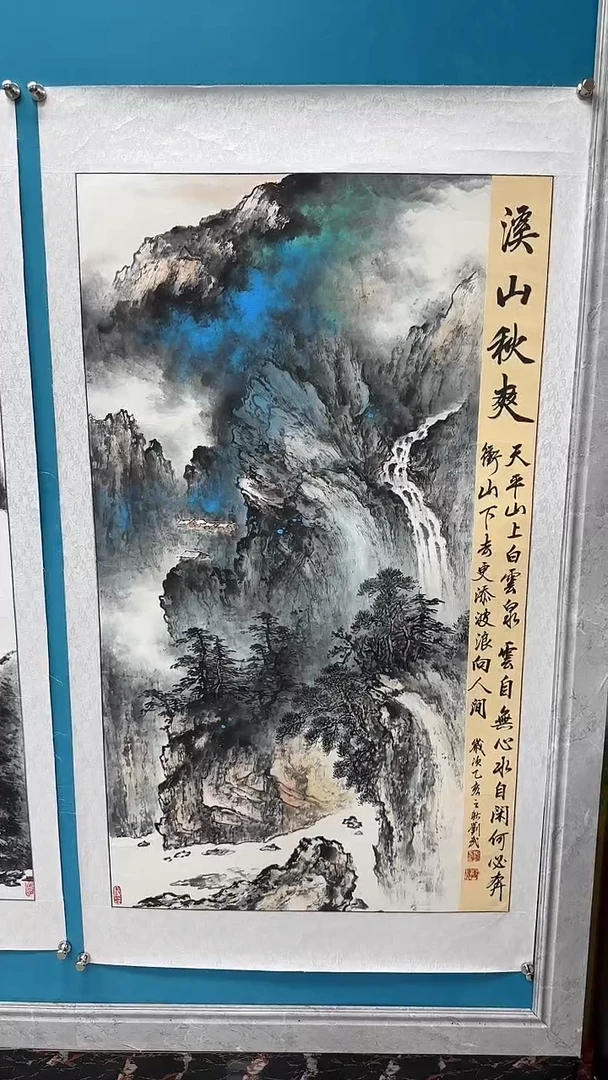 溪山秋爽
天平山上白雲泉雲自無心水自闲何必奔
衝山下去更添波浪向人间
歲次乙亥之秋劉武